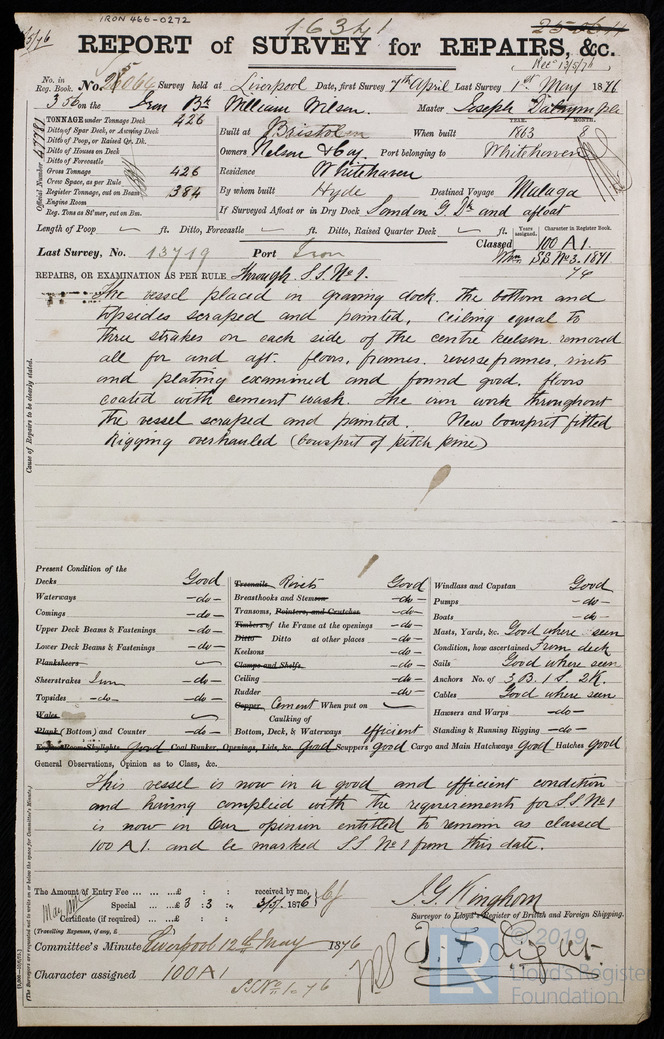 IRON 466-0272
16341
REPORT of SURVEY for REPAIRS, &c.
Rec 13/5/76
No. in Reg. Book. No. Survey held at Liverpool Date, first Survey 7th April Last Survey 1st May 1876
356 on the Iron Bk William Wilson. Master Joseph Dalrymple
TONNAGE under Tonnage Deck 426
Ditto of Spar Deck, or Awning Deck
Ditto of Poop, or Raised Qr. Dk.
Ditto of Houses on Deck
Ditto of Forecastle
Gross Tonnage 426
Crew Space, as per Rule
Register Tonnage, cut on Beam 384
Engine Room
Reg. Tons as St'mer, cut on Bm.
Official Number 47781
Built at Bristol When built YEAR. 1863 MONTH. 8
Owners Nelson & Coy. Port belonging to Whitehaven
Residence Whitehaven
By whom built Hyde Destined Voyage Malaga
If Surveyed Afloat or in Dry Dock London G. Dk and afloat
Length of Poop ft. Ditto, Forecastle ft. Ditto, Raised Quarter Deck ft.
Years assigned. Character in Register Book.
Classed 100 A 1.
When S.S. No 3. 1871
Last Survey, No. 13719 Port Iron
76
REPAIRS, OR EXAMINATION AS PER RULE Through S.S. No 1.
The vessel placed in graving dock. The bottom and
topsides scraped and painted, ceiling equal to
three strakes on each side of the centre keelson removed
all for and aft. floors, frames. reverse frames. rivets
and plating examined and found good. floors
coated with cement wash. The iron work throughout
the vessel scraped and painted. New bowsprit fitted
Rigging overhauled (bowsprit of pitch pine)
Cause of Repairs to be clearly stated.
Present Condition of the
Decks Good
Waterways —do—
Comings —do—
Upper Deck Beams & Fastenings —do—
Lower Deck Beams & Fastenings —do—
Planksheers
Sheerstrakes Iron —do—
Topsides —do— —do—
Wales
Plank (Bottom) and Counter —do—
Treenails Rivets Good
Breasthooks and Stemson —do—
Transoms, Pointers, and Crutches —do—
Timbers of the Frame at the openings —do—
Ditto Ditto at other places —do—
Keelsons —do—
Clamps and Shelfs
Ceiling —do—
Rudder —do—
Copper, Cement When put on
Caulking of
Bottom, Deck, & Waterways efficient
Windlass and Capstan Good
Pumps —do—
Boats —do—
Masts, Yards, &c. Good where seen
Condition, how ascertained From deck
Sails Good where seen
Anchors No. of 3 B. 1 S. 2 K.
Cables Good where seen
Hawsers and Warps —do—
Standing & Running Rigging —do—
Engine Room Skylights Good Coal Bunker, Openings, Lids, &c. Good Scuppers good Cargo and Main Hatchways good Hatches good
General Observations, Opinion as to Class, &c.
This vessel is now in a good and efficient condition
and having complied with the requirements for S.S. No 1
is now in Our opinion entitled to remain as classed
100 A 1. and be marked SS No 1 from this date.
The Amount of Entry Fee £ : : received by me,
Special £ 3 : 3 : 3/5/ 1876
Certificate (if required) £ : :
(Travelling Expenses, if any, £
J. G. Kinghorn
Surveyor to Lloyd's Register of British and Foreign Shipping.
Committee's Minute Liverpool 12th May 1876
Character assigned 100 A 1
SS No 1 - 76
LR
© 2019
Lloyd's Register
Foundation